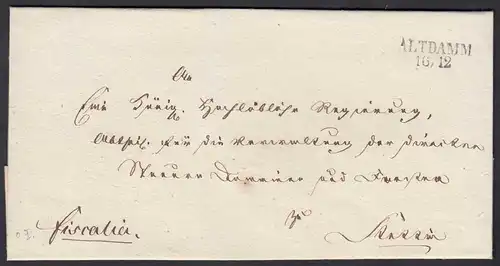 ALTDAMM
16/12
An
Eine Königl. Hochlöbliche Regierung,
Abtheil. für die Verwaltung der directen
Steuern Domainen und Forsten
zu
Stettin
Fiscalia.